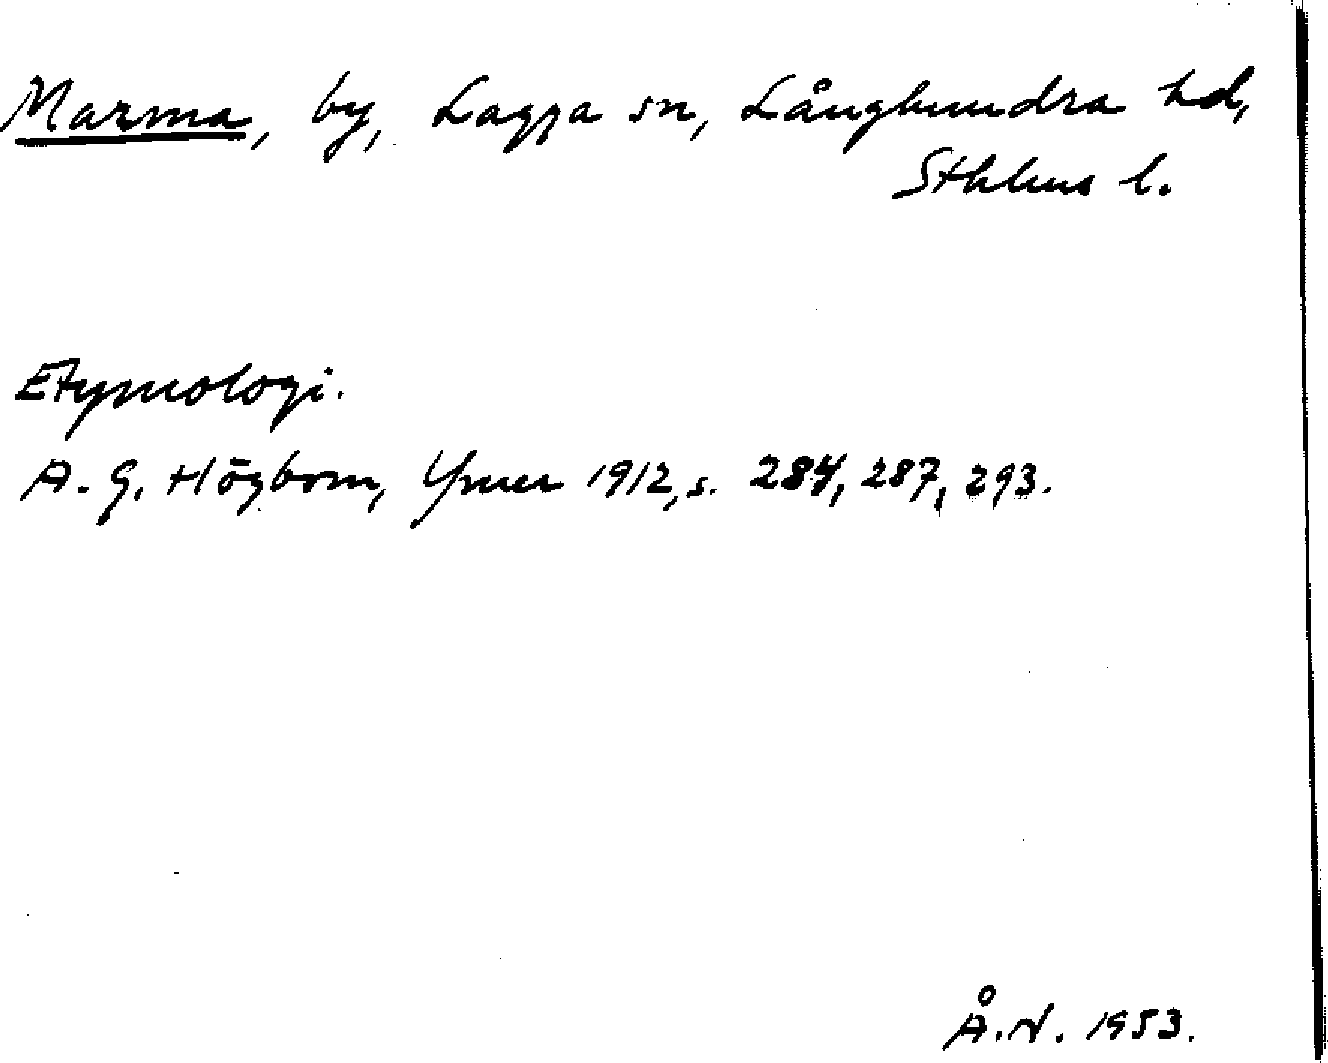 Marma, by, Lagga sn, Långhundra hd,
Sthlms l.
Etymologi.
A. G. Högbom, Ymer 1912, s. 284, 287, 293.
Å. N. 1953.